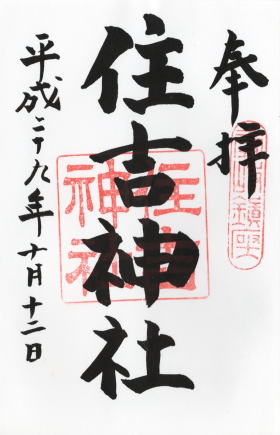 奉拝
鎮座
住吉神社
住吉
神社
平成二十九年十月十二日